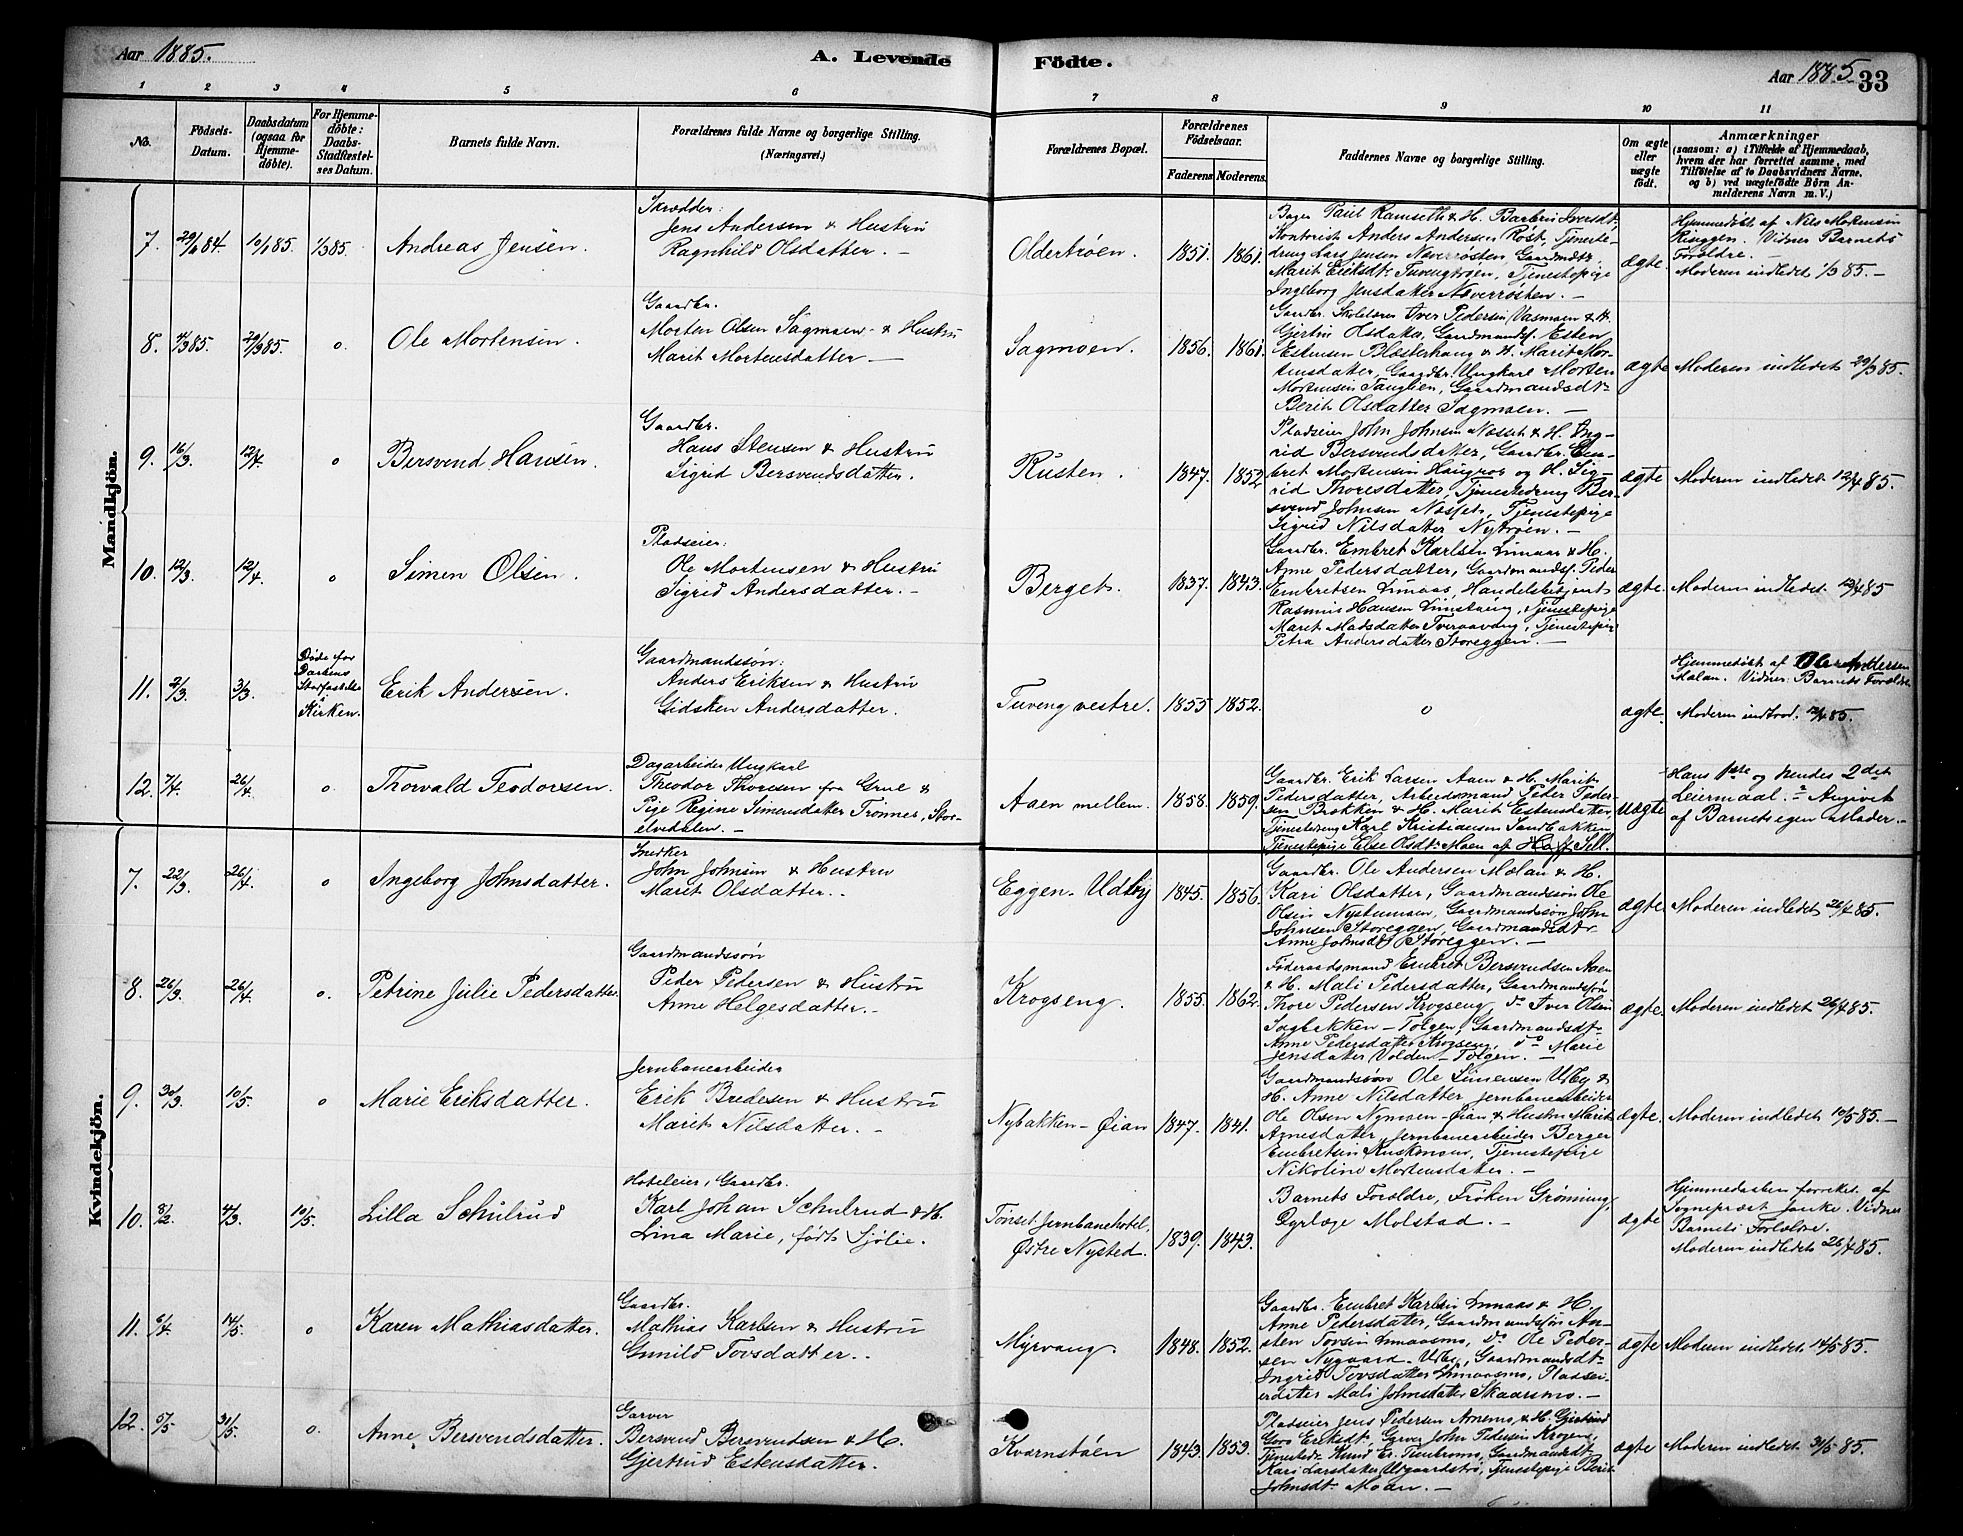 Aar 1885.
A. Levende
Födte.
Aar 1885.
33
1 2 3 4 5 6 7 8 9 10 11
No.
Födsels-
Datum.
Daabsdatum
(ogsaa for
Hjemme-
döbte).
For Hjemme-
döbte:
Daabs-
Stadfæstel-
ses Datum.
Barnets fulde Navn.
Forældrenes fulde Navne og borgerlige Stilling.
(Næringsvei.)
Forældrenes Bopæl.
Forældrenes
Födselsaar.
Faderens. Moderens.
Faddernes Navne og borgerlige Stilling.
Om ægte
eller
uægte
födt.
Anmærkninger
(saasom: a) i Tilfælde af Hjemmedaab,
hvem der har forrettet samme, med
Tilföielse af to Daabsvidners Navne,
og b) ved uægtefödte Börn An-
melderens Navn m. V.)
Mandkjön.
7. 84 10/1 85 1/3 85 Andreas Jensen.
Skrædder:
Jens Andersen & Hustru
Ragnhild Olsdatter. —
Oldertrøen. 1851. 1861.
Bager Paul Ramseth & H. Barbro Iversdt,
Kontorist Anders Andersen Røst, Tjeneste-
dreng Lars Jensen Næverrøsten, Gaardmdt.
Marit Eriksdt. Tuvengtrøen, Tjenestepige
Ingeborg Jensdatter Næverrøsten. —
ægte.
Hjemmedøbt af Nils Mortensen
Ringgen. Vidner Barnets
Forældre. —
Moderen indledet 1/3 85. —
8. 85. 29/3 85. o. Ole Mortensen.
Gaardbr.
Morten Olsen Sagmoen & Hustru
Marit Mortensdatter —
Sagmoen. 1856. 1861.
Gaardbr. Iver Pedersen Vasmoen & H.
Gjertru Olsdatter, Gaardmandsf. Esten
Estensen Blæsterhaug & H. Marit Mor-
tensdatter, Gaardbr. Ungkarl Morten
Mortensen Tauglien, Gaardmandsdt.
Berit Olsdatter Sagmoen. —
ægte Moderen indledet 29/3 85.
9. 16/3 12/4 o Bersvend Hansen.
Gaardbr.
Hans Stensen & Hustru
Sigrid Bersvendsdatter.
Rusten. 1847. 1852
Pladseier John Johnsen Næsset & H. Ing-
rid Bersvendsdatter, Gaardbr. Em-
bret Mortensen Haugros og H. Sig-
rid Thoresdatter, Tjenestedreng Ber-
svend Johnsen Næsset, Tjenestepige
Sigrid Nilsdatter Nytrøen. —
ægte Moderen indledet 12/4 85.
10. 12/3 12/4 o Simen Olsen.
Pladseier:
Ole Mortensen & Hustru
Sigrid Andersdatter. —
Berget. 1837. 1843.
Gaardbr. Embret Karlsen Limaas & H.
Anne Pedersdatter, Gaardmandsf. Peder
Embretsen Limaas, Handelsbetjent
Rasmus Hansen, Tjenestepige
Marit Madsdatter Tveraavang, Tjenestepige
Petra Andersdatter Storeggen. —
ægte. Moderen indledet 12/4 85
11. 2/3 3/3
Døde før
Daabens
Stadfæstelse
i
Kirken.
Erik Andersen.
Gaardmandssøn:
Anders Eriksen & Hustru
Gidsken Andersdatter.
Tuveng vestre. 1855 1852. o ægte.
Hjemmedøbt af Ole Andersen
Mælan. Vidner: Barnets Forældre
Moderen indtraad. 12/4 85.
12. 7/4 26/4 o Thorvald Teodorsen.
Dagarbeider Ungkarl
Theodor Thoresen fra Grue &
Pige Regine Simensdatter Trønnes, Stor-
elvedalen. —
Aaen mellem. 1858. 1859.
Gaardbr. Erik Larsen Aaen & H. Marit
Pedersdatter, Arbeidsmand Peder Peder-
sen Brækken & H. Marit Estensdatter,
Tjenestedreng Karl Kristiansen Sandbakken
Tjenestepige Else Olsdt. Moen af
uægte
Hans 1ste og hendes 2det
Leiermaal. Angivet
af Barnets egen Moder. —
Kvindekjön.
7. 22/3 26/4 o Ingeborg Johnsdatter.
Snedker
John Johnsen & Hustru
Marit Olsdatter.
Eggen. Udby 1845. 1856.
Gaardbr. Ole Andersen Mælan & H.
Kari Olsdatter, Gaardmandssøn Ole
Olsen Nystumoen, Gaardmandssøn John
Johnsen Storeggen, Gaardmandsdtr
Anne Johnsdt. Storeggen. —
ægte Moderen indledet 26/4 85.
8. 26/3 26/4 o. Petrine Julie Pedersdatter
Gaardmandssøn
Peder Pedersen & Hustru
Anne Helgesdatter. —
Krogseng. 1855. 1862.
Føderaadsmand Embret Bersvendsen Aaen
& H. Mali Pedersdatter, Gaardmandssøn
Thore Pedersen Krogseng, do Iver Olsen
Sagbakken – Tolgen, Gaardmandsdt.
Anne Pedersdatter Krogseng, do Marie
Jensdatter Volden – Tolgen. —
ægte. Moderen indledet 26/4 85.
9. 30/3 10/5 o Marie Eriksdatter.
Jernbanearbeider
Erik Bredesen & Hustru
Marit Nilsdatter. —
Nybakken – Øian 1847. 1841.
Gaardmandssøn Ole Simensen Udby &
H. Anne Nilsdatter Jernbanearbeider
Ole Olsen Nymoen – Øian & Hustru Marit
Arnesdatter, Jernbanearbeider Berger
Embretsen, Tjenestepige
Nikoline Mortensdatter. —
ægte. Moderen indledet 10/5 85. —
10. 8/2 4/3 10/5. Lilla Schulrud
Hoteleier, Gaardbr.
Karl Johan Schulrud & H.
Lina Marie, født Sjølie.
Tønset Jernbanehotel,
Østre Nysted. 1839. 1843.
Barnets Forældre, Frøken Grønning,
Dyrlæge Molstad. —
ægte
Hjemmedaaben forrettet af
Sogneprest Janke. Vidner
Barnets Forældre.
Moderen indledet 26/4 85.
11. 6/4 14/5 o Karen Mathiasdatter.
Gaardbr.
Mathias Karlsen & Hustru
Gunild Tovsdatter. —
Myrvang. 1848. 1852.
Gaardbr. Embret Karlsen Limaas & H.
Anne Pedersdatter, Gaardmandssøn An-
sten Tovsen Limaasmo, do Ole Peder-
sen Nygaard – Udby, Gaardmandsdt.
Ingrid Tovsdatter Limaasmo, Pladsei-
erdatter Mali Johnsdatter Skaarsmo. —
ægte Moderen indledet 14/5 85.
12. 5/5 31/5. o. Anne Bersvendsdatter.
Garver
Bersvend Bersvendsen & H.
Gjertrud Estensdatter.
Kværnstøen 1843. 1853.
Pladseier Jens Pedersen Arnemo & H. Gjertrud
Goro Eriksdt. Garver John Pedersen Krogeng,
Kari Larsdatter, Tjenestepige Berit
Johnsdt. Moan. —
ægte Moderen indledet 31/5 85.